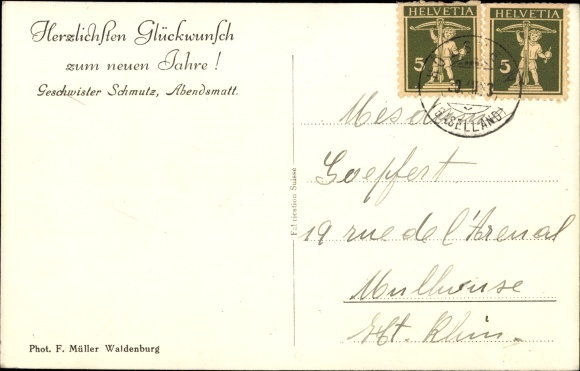 Herzlichsten Glückwunsch
zum neuen Jahre!
Geschwister Schmutz, Abendsmatt.
HELVETIA
5
HELVETIA
5
(BASELLAND)
Mesd
Goepfert
19 rue de l'Arenal
Mulhouse
Ht. Rhin.
Fabrication Suisse
Phot. F. Müller Waldenburg